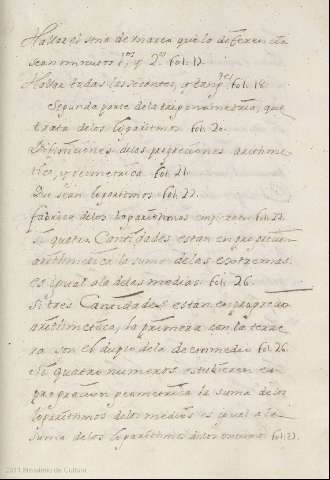 Hallar el seno de un arco que la diferencia
sean minutos 1.os, y 2.os fol. 17.
Hallar todas las secantes, y tang.tes fol. 18.
Segunda parte de la trigonometria, que
trata de los logaritmos fol. 20.
Difiniciones de las proporciones arithme-
tica, y geometrica. fol. 21.
Que sean logarithmos fol. 22.
fabrica de los logarithmos empiezan fol. 23.
Si quatro Cantidades estan en proporcion
arithmetica la suma de las extremas
es igual a la de las medias fol. 26.
Si tres Cantidades estan en proporcion
arithmetica, la primera con la terce-
ra son el duplo de la de enmedio fol. 26.
Si quatro numeros estubieren en
proporcion geometrica la suma de los
logarithmos de los medios es igual a la
suma de los logarithmos de los extremos fol. 27.
2011 Ministerio de Cultura